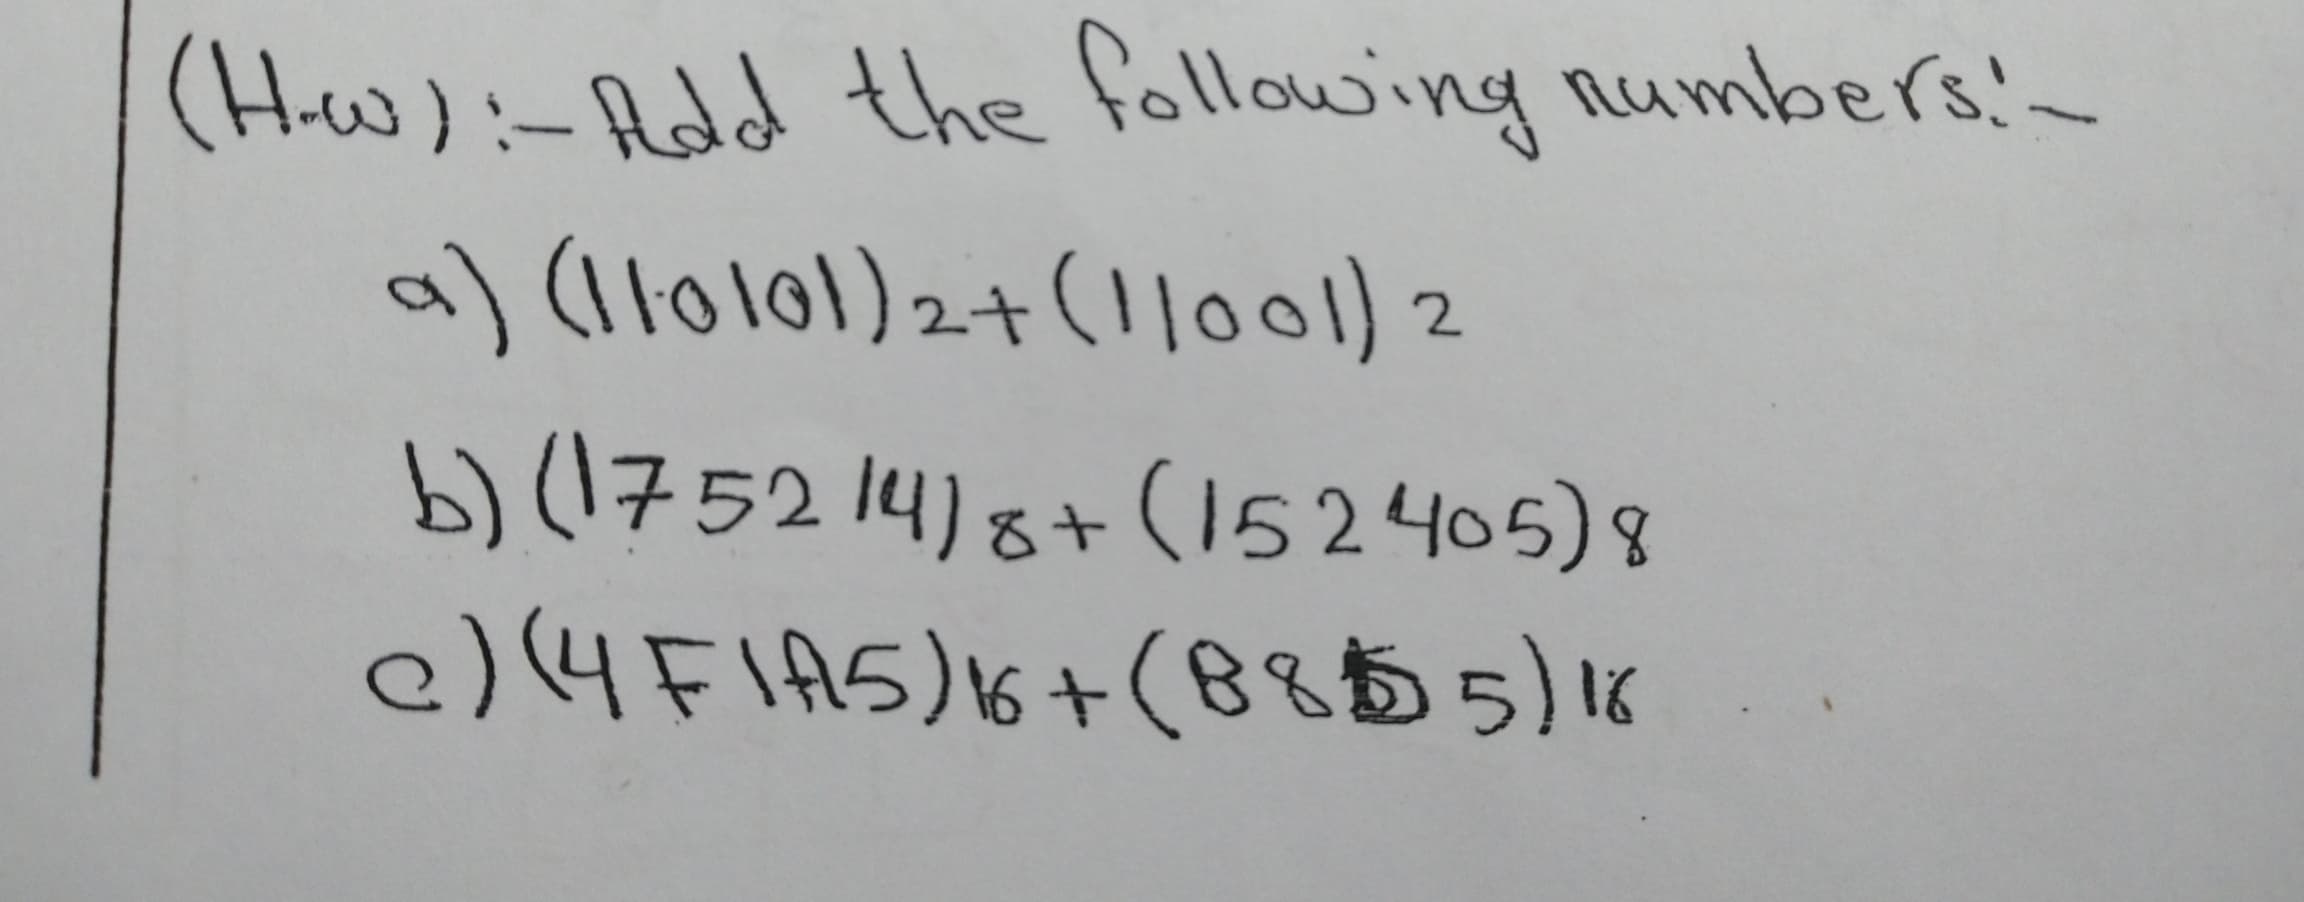 (H.w) :- Add the following numbers:-
a) (110101)2+(11001)2
b) (175214)8+(152405)8
c) (4F1A5)16+(88 5)16